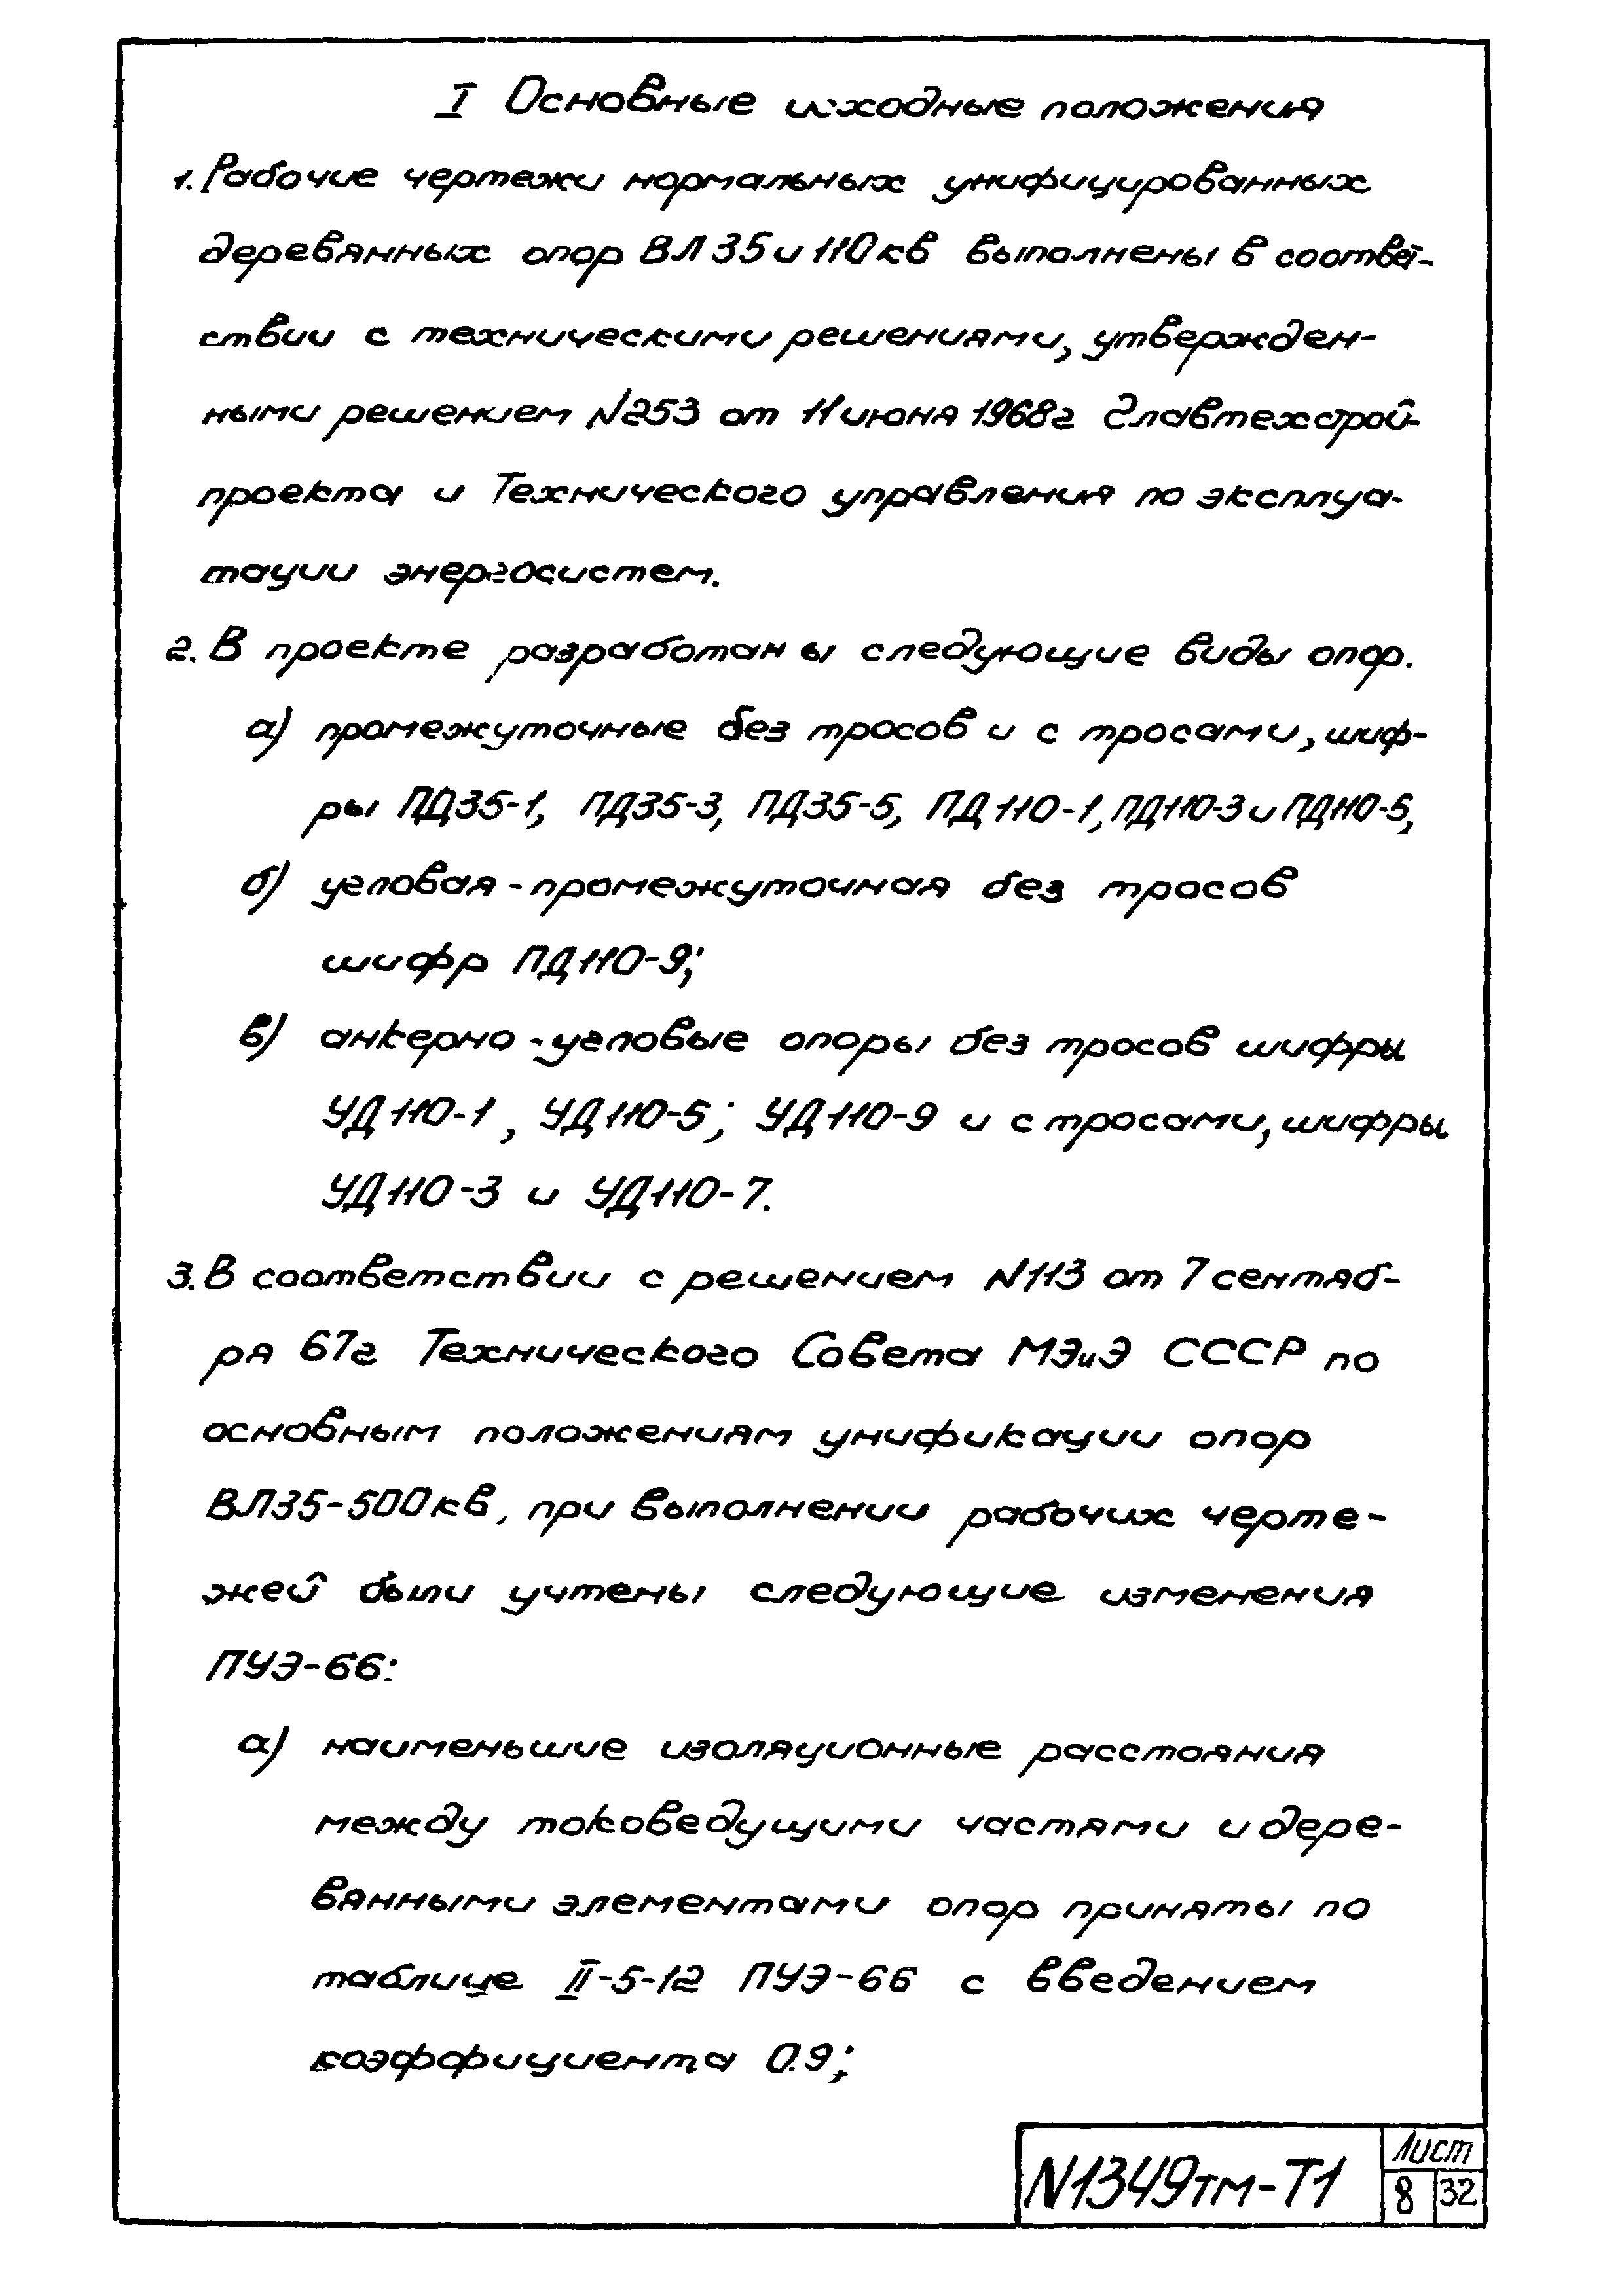 I Основные исходные положения
1. Рабочие чертежи нормальных унифицированных
деревянных опор ВЛ 35 и 110 кв выполнены в соответ-
ствии с техническими решениями, утвержден-
ными решением N253 от 11 июня 1968г Главтехстрой-
проекта и Технического управления по эксплуа-
тации энергосистем.
2. В проекте разработаны следующие виды опор.
а) промежуточные без тросов и с тросами, шиф-
ры ПД35-1, ПД35-3, ПД35-5, ПД110-1, ПД110-3 и ПД110-5,
б) угловая-промежуточная без тросов
шифр ПД110-9;
в) анкерно-угловые опоры без тросов шифры
УД110-1, УД110-5; УД110-9 и с тросами, шифры
УД110-3 и УД110-7.
3. В соответствии с решением N113 от 7 сентяб-
ря 67г Технического Совета МЭиЭ СССР по
основным положениям унификации опор
ВЛ35-500кв, при выполнении рабочих черте-
жей были учтены следующие изменения
ПУЭ-66:
а) наименьшие изоляционные расстояния
между токоведущими частями и дере-
вянными элементами опор приняты по
таблице II-5-12 ПУЭ-66 с введением
коэффициента 0.9;
N1349тм-Т1
Лист
8 32